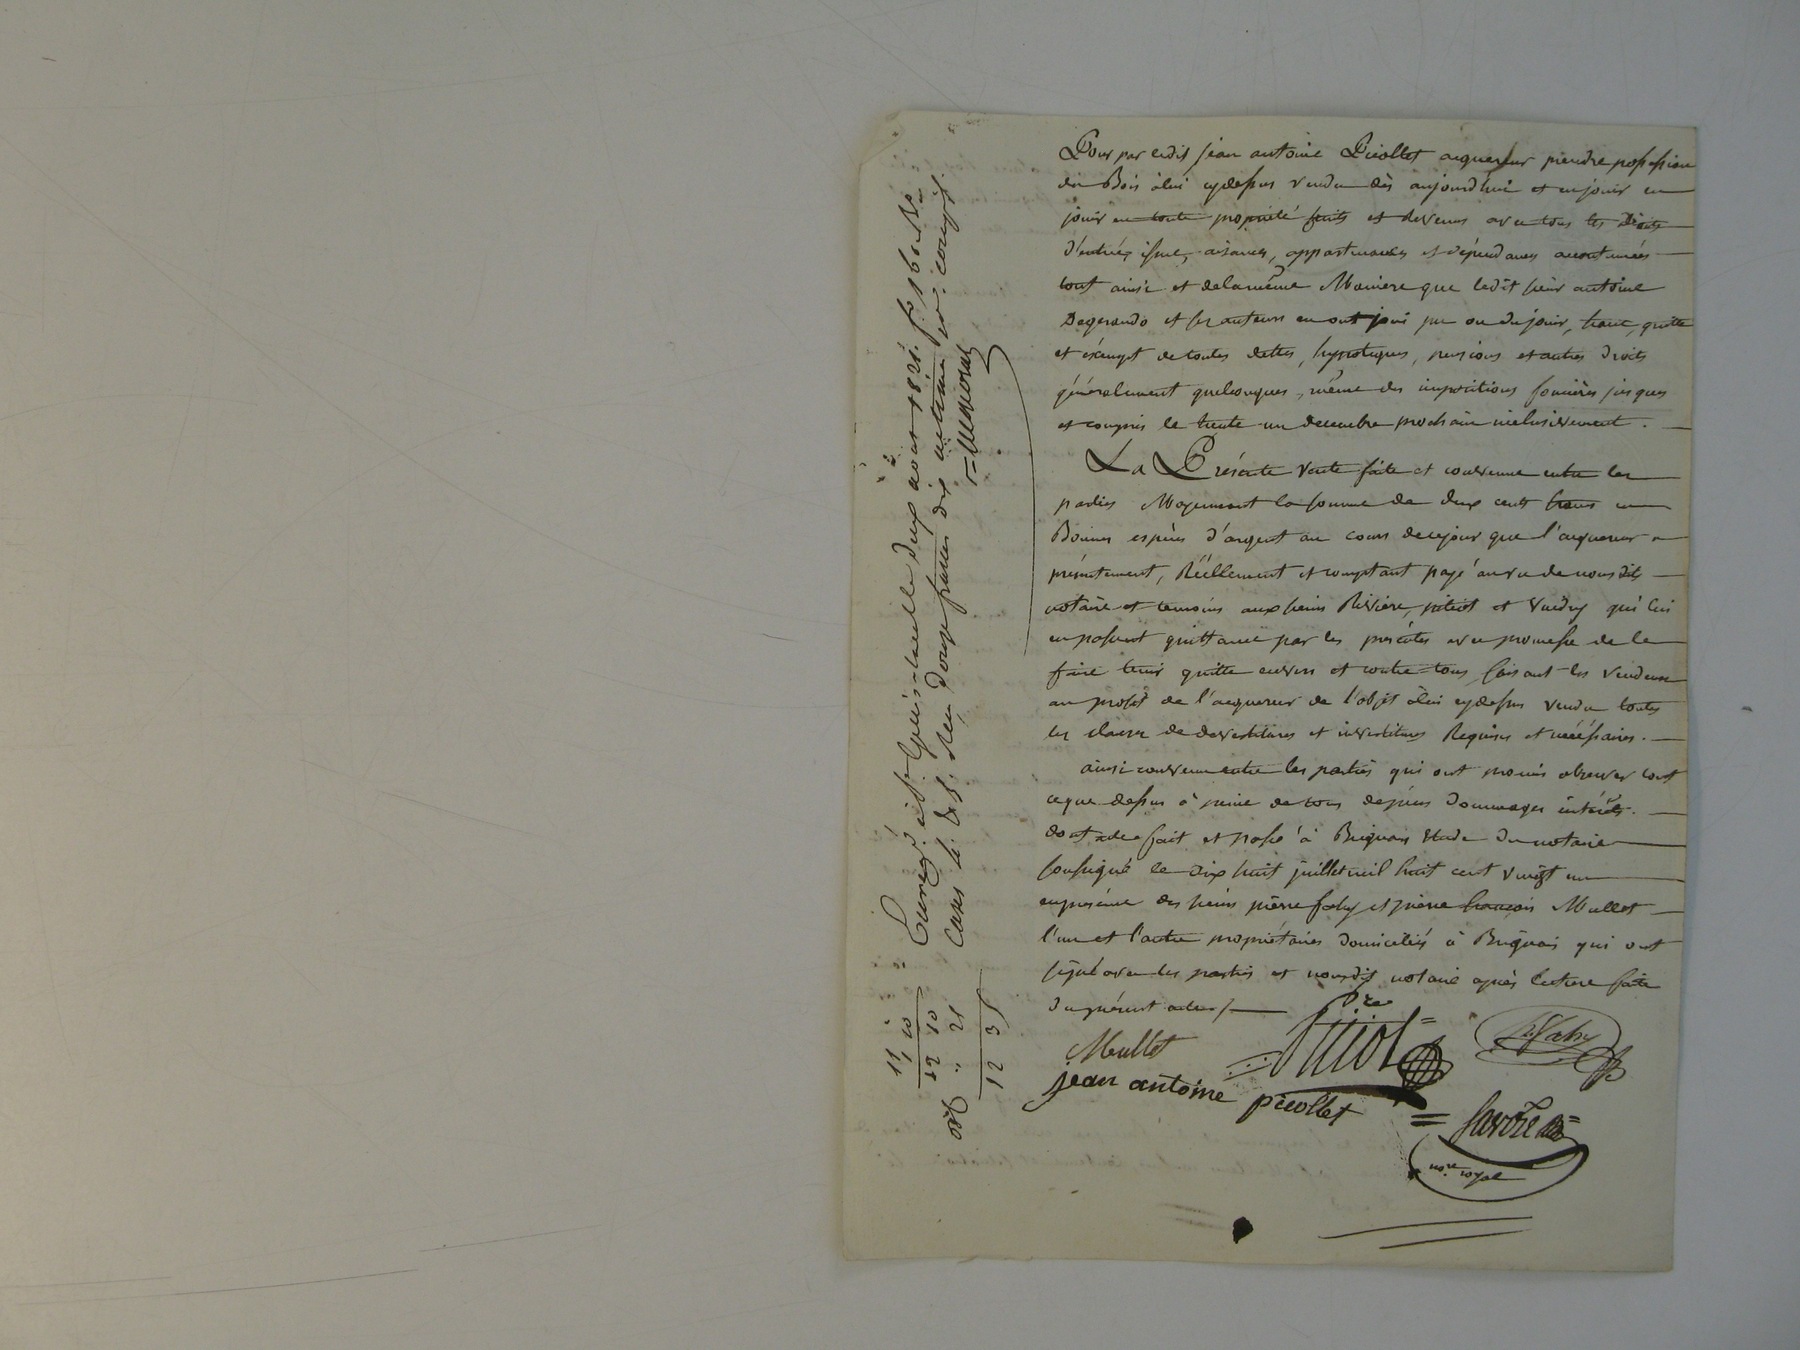 Pour par ledit jean antoine Picollet acquereur prendre possession
du Bois àlui cydessus vendu dès aujourd'hui et enjouir en
jouir en toute propriété fruits et Revenus avec tous les Droits
d'entrée, issue, aisances, appartenances et dépendances accoutumées
tout ainsi et delamême Maniere que ledit sieur antoine
Degerando et ses auteurs en ont joui pu ou du jouir, franc, quitte
et éxempt de toutes dettes, hypoteques, pensions et autres droits
généralement quelconques, même des impositions foncières jusques
et compris le trente un decembre prochain inclusivement.
La Présente vente faite et convenue entre les
parties Moyennant la somme de deux cents francs en
Bonnes espèces d'argent au cours decejour que l'acquereur a
présentement, Réellement et comptant payé auvu de nousdits
notaire et temoins aux sieurs Rivière, pitiot et qui lui
en passent quittance par les présentes avec promesse de le
faire tenir quitte envers et contre tous, faisant les vendeurs
au profit de l'acquereur de l'objet àlui cydessus vendu toutes
les clauses de devestitures et investitures Requises et nécéssaires.
ainsi convenu entre les parties qui ont promis observer tout
ceque dessus à peine de tous depens dommages intérêts.
dont acte fait et passé à Brignais étude du notaire
soussigné le dix huit juillet mil huit cent vingt un
enprésence des sieurs pierre faby et pierre françois Mullet
l'un et l'autre propriétaires domiciliés à Brignais qui ont
signé avec les parties et nousdit notaire après lecture faite
du présent acte /.
Mullet
Pre
pitiot
P. faby
jean antoine picollet
Savoie
nore royal
Enregé à St Genis-Laval le deux aout 1821. fo 160 Ro
Cases 4. & 5. Reçu douze francs dix centimes compris
11 10
12 10
" 21
12 31